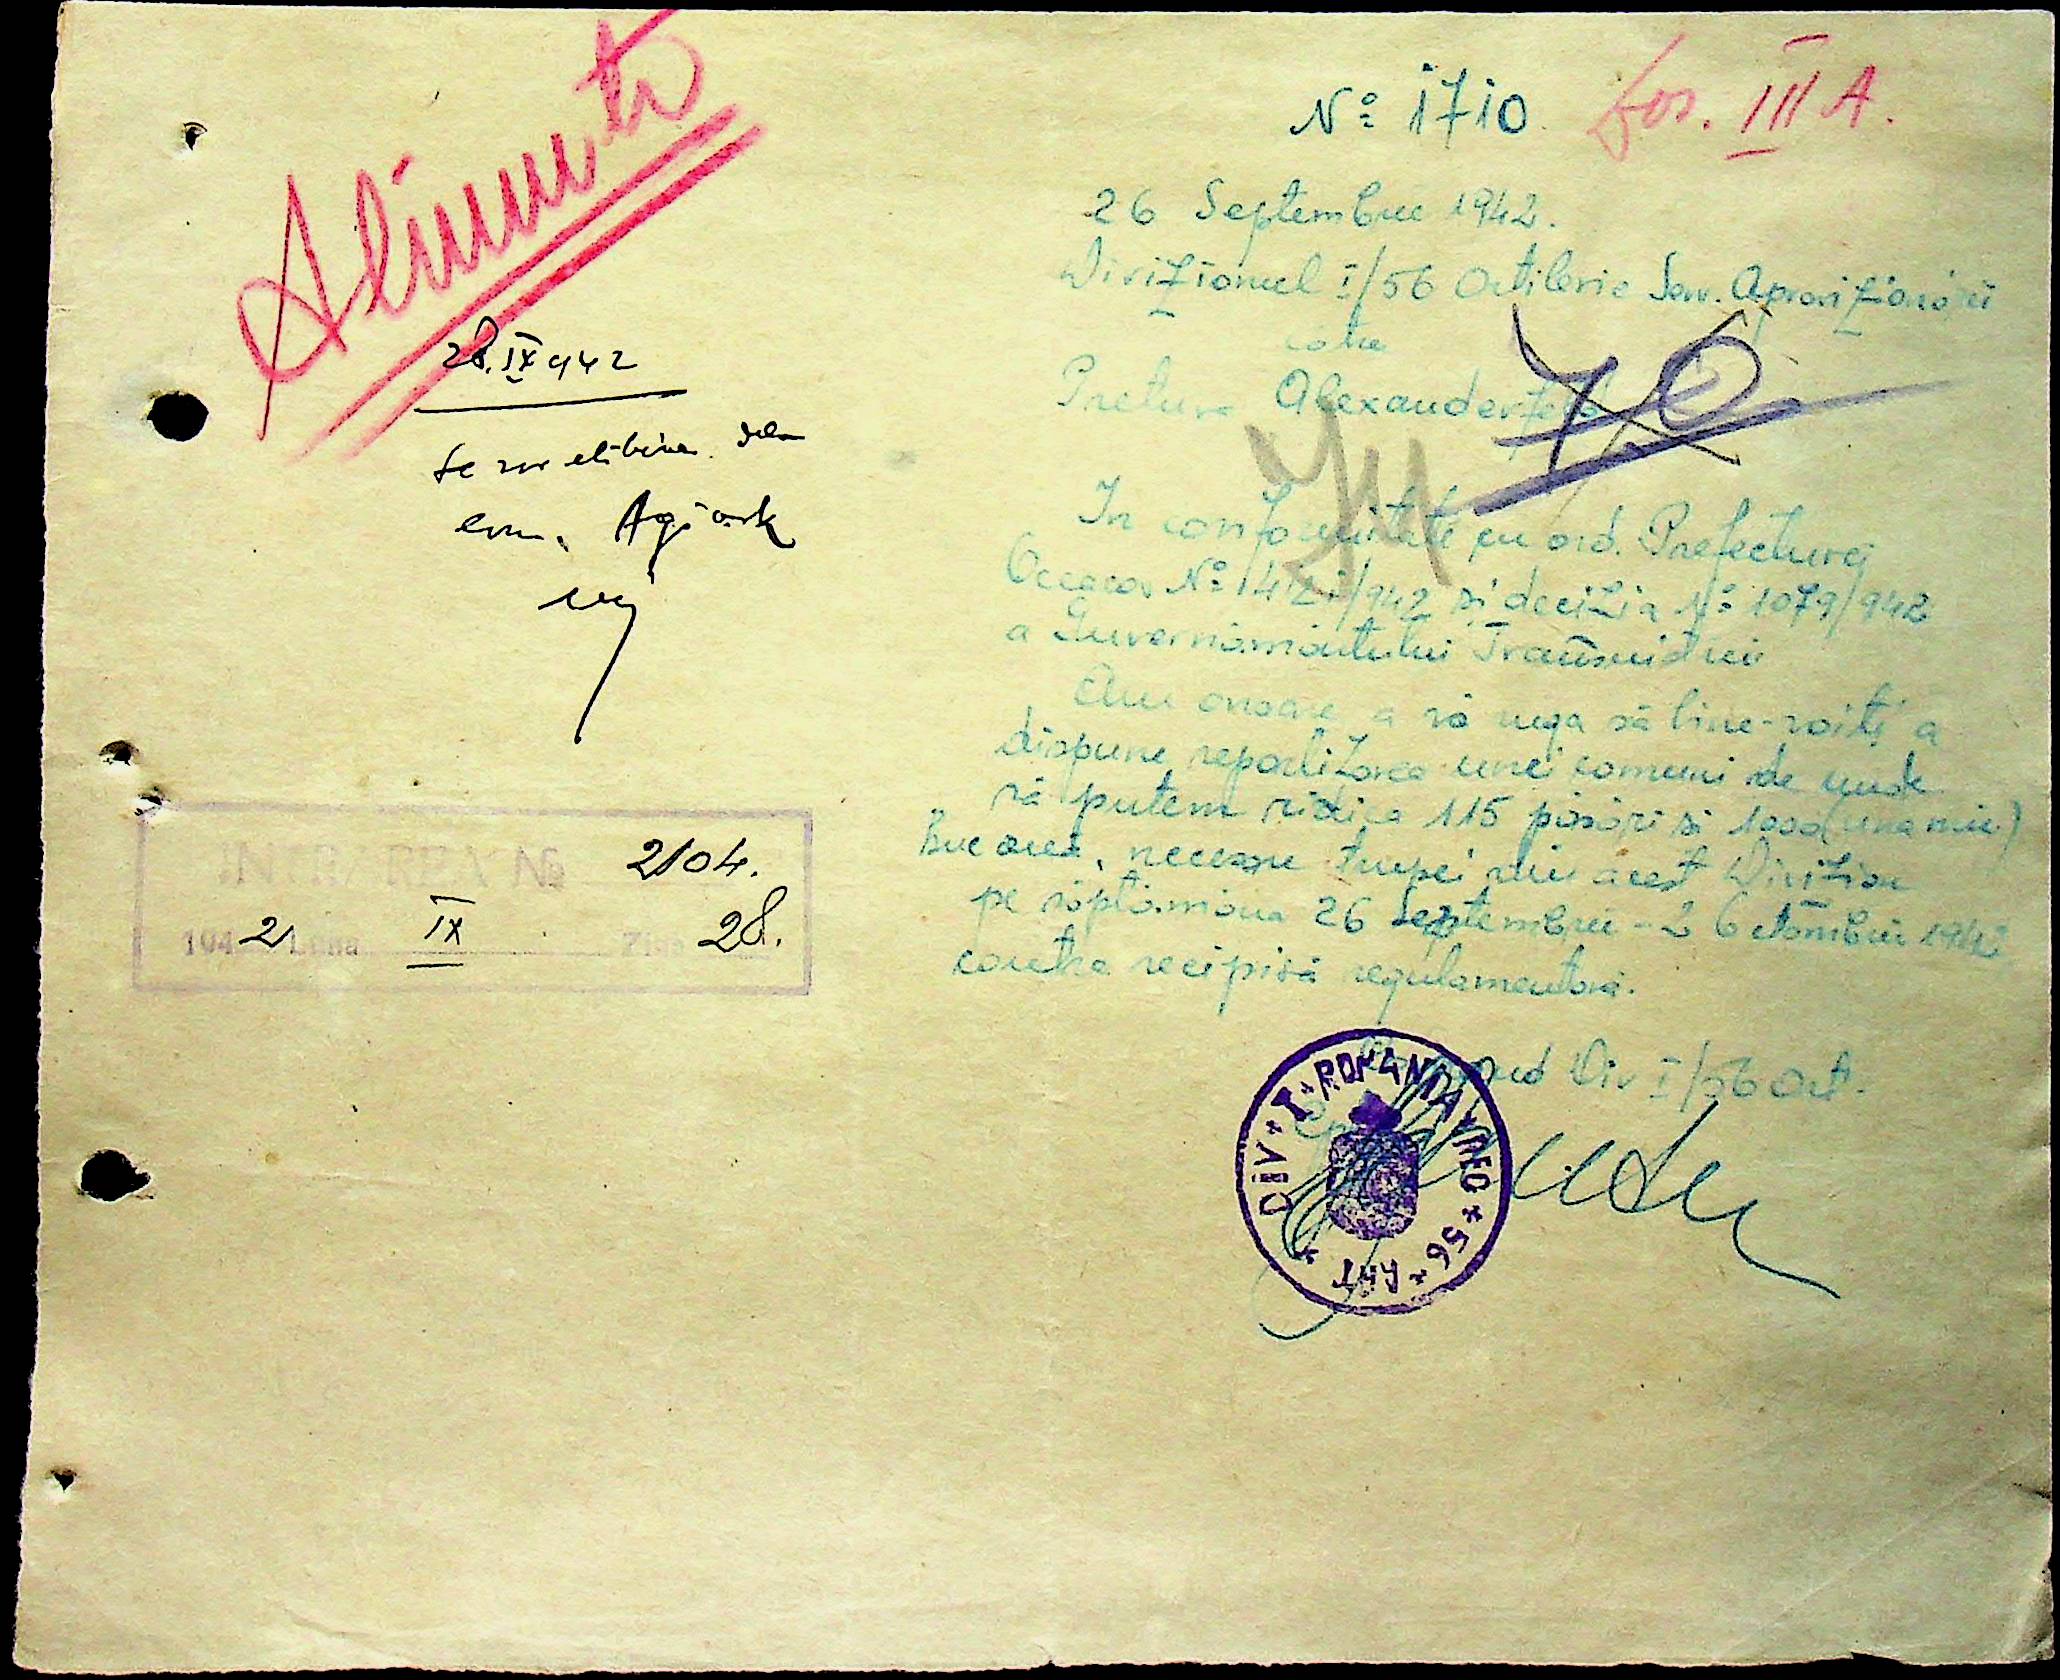 Alimente
28.IX 942
Se vor elibera din
com. Agiask
INTRAREA No 2104.
1942 Luna IX Ziua 28.
No 1710 Dos. III A.
26 Septembrie 1942.
Divizionul I/56 Artilerie Serv. Aprovizionării
către
Pretura Alexanderfeld
In conformitate cu ord. Prefecturei
Oceacov No 14121/942 și decizia No 1079/942
a Guvernământului Transnistriei
Am onoare a vă ruga să bine-voiți a
dispune repartizarea unei comuni de unde
să putem ridica 115 păsări și 1000 (una mie)
Buc ouă, necesare trupei din acest Divizion
pe săptămâna 26 Septembrie - 2 Octombrie 1942
contra recipisă regulamentară.
Comand Div I/56 Art.
DIV * I * ROMANIA * REG * 56 * ART *